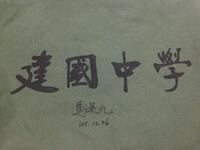 建國中學
馬英九
105.12.26